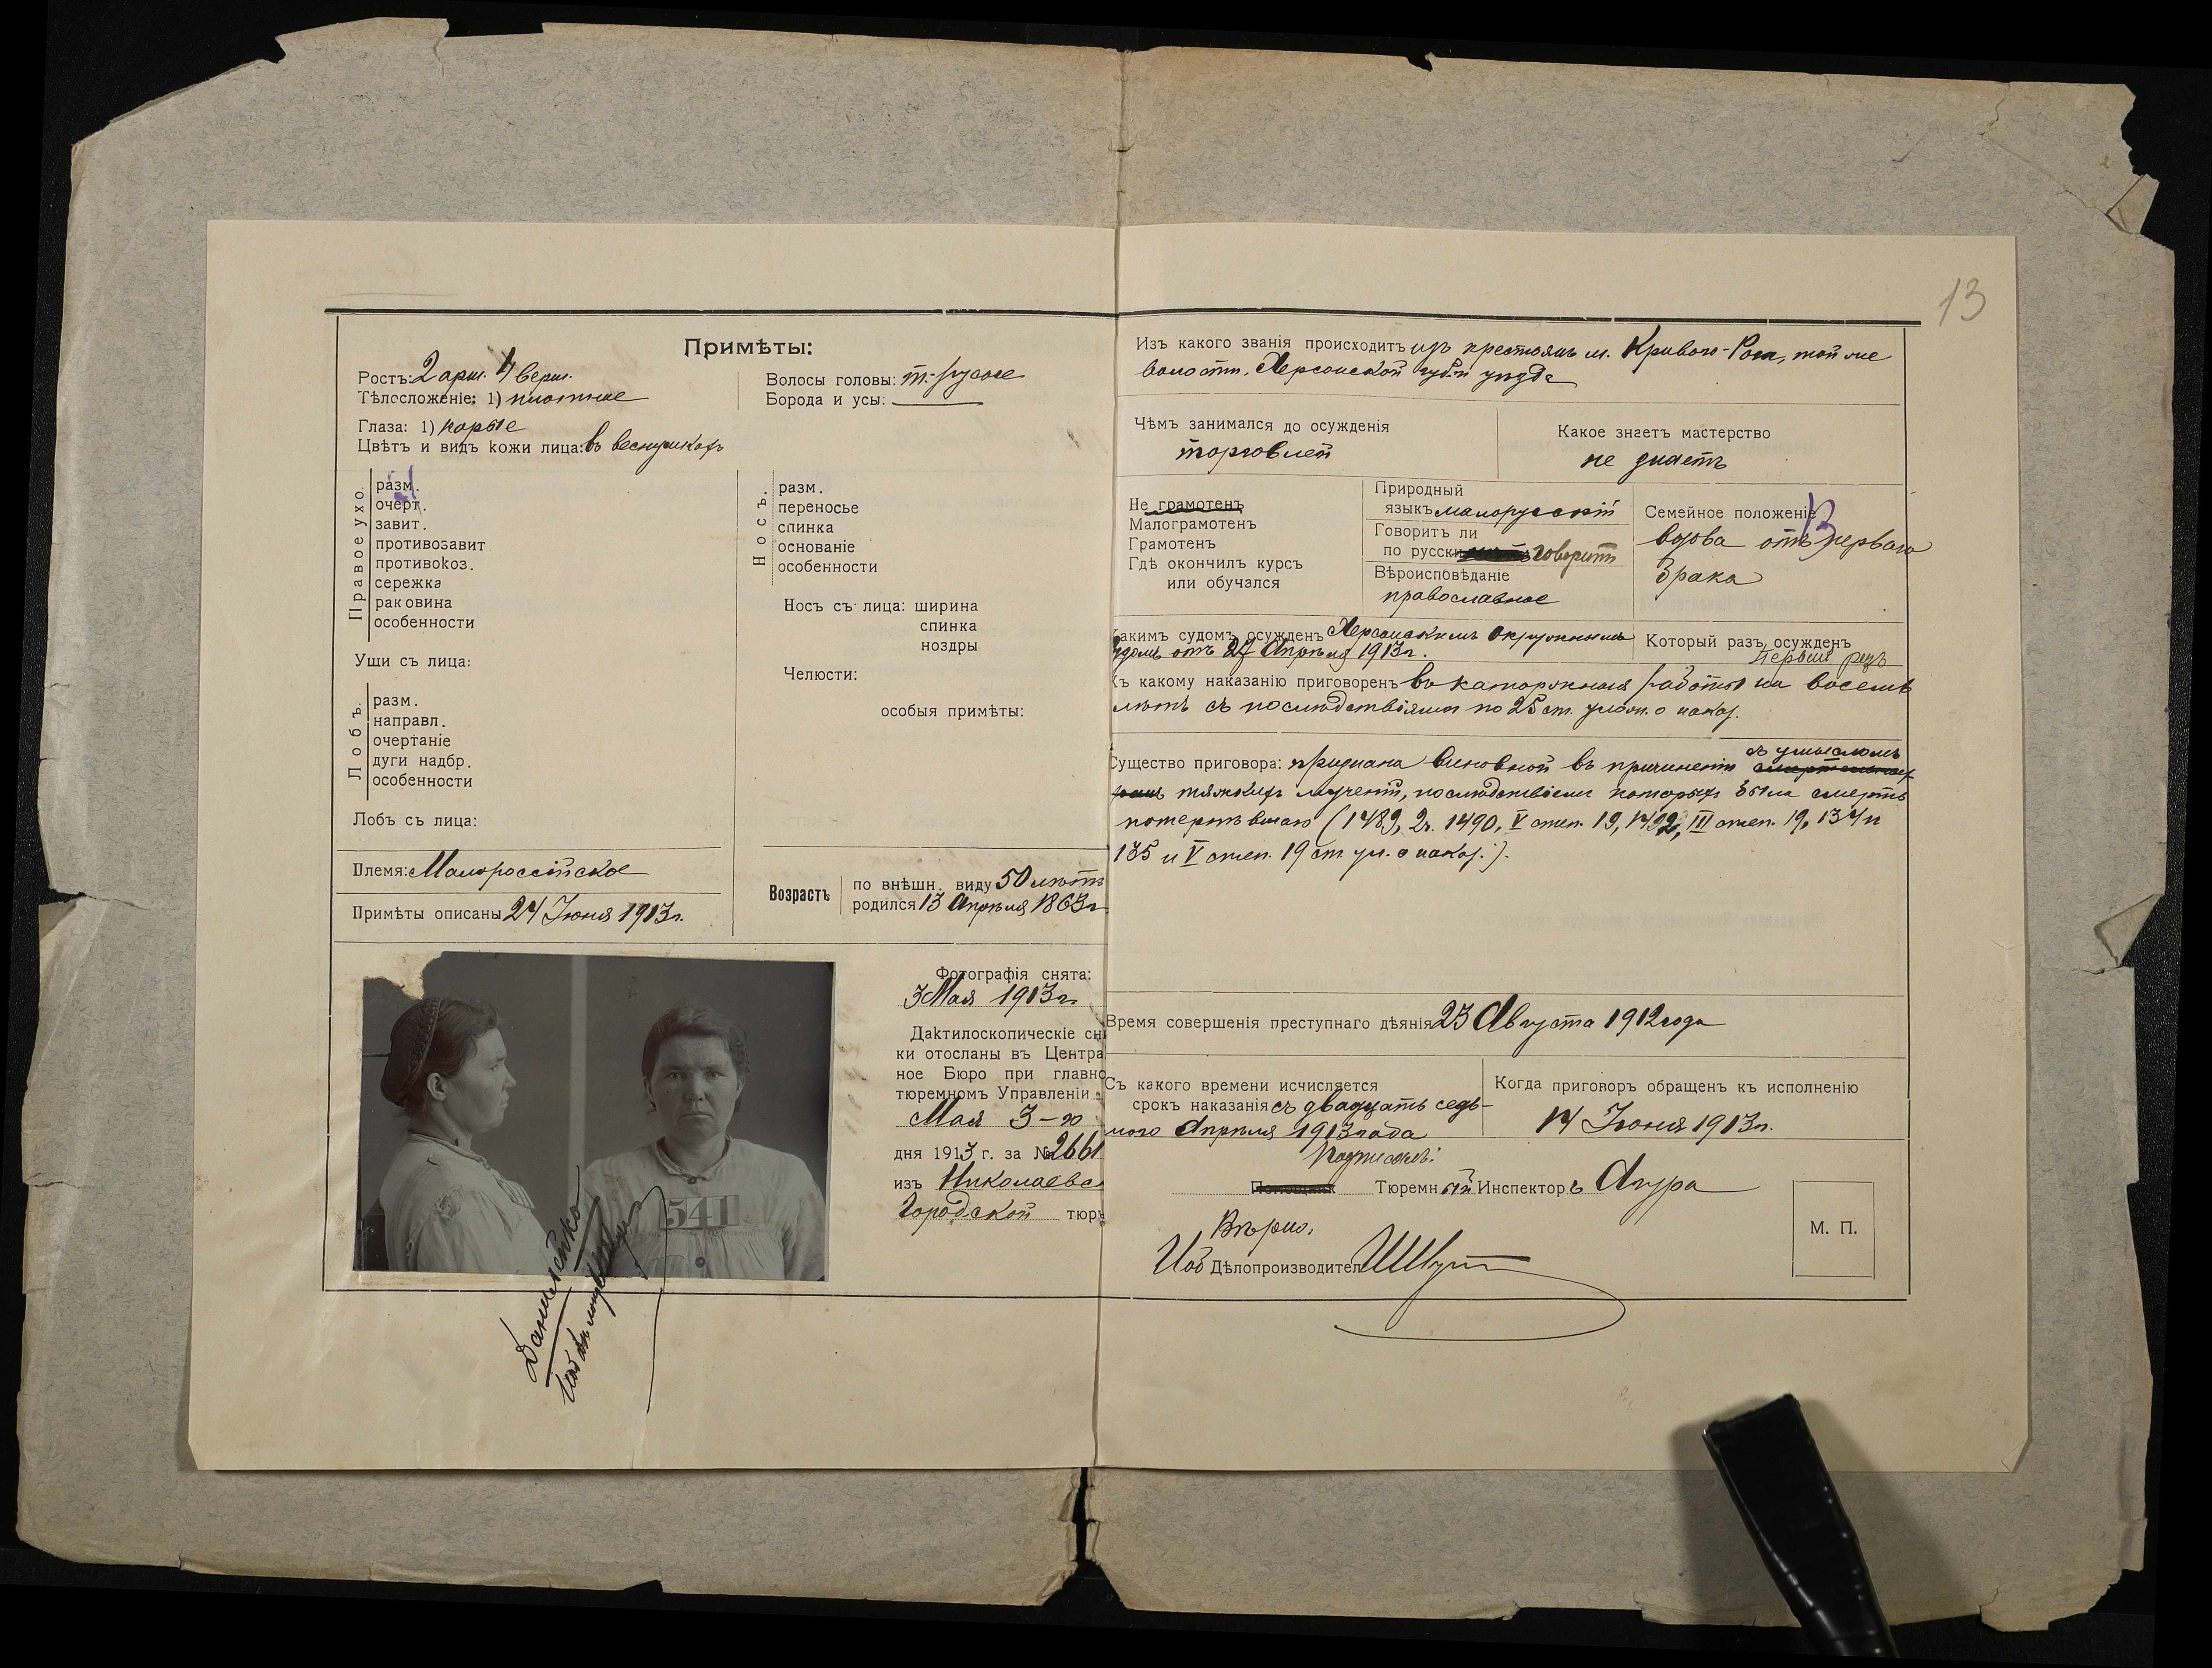 13
Примѣты:
Ростъ: 2 арш. 4 верш.
Тѣлосложеніе: 1) плотное
Глаза: 1) карые
Цвѣтъ и видъ кожи лица: въ веснушкахъ
Волосы головы: т.-русые
Борода и усы:
Правое ухо.
разм.
очерт.
завит.
противозавит
противокоз.
сережка
раковина
особенности
Уши съ лица:
Лобъ.
разм.
направл.
очертаніе
дуги надбр.
особенности
Лобъ съ лица:
Носъ.
разм.
переносье
спинка
основаніе
особенности
Носъ съ лица: ширина
спинка
ноздры
Челюсти:
особыя примѣты:
Племя: Малороссійское
Примѣты описаны 24 Іюня 1913г.
Возрастъ
по внѣшн. виду 50 лѣтъ
родился 13 Апрѣля 1863г
541
Даниленко
Фотографія снята:
3 Мая 1913г.
Дактилоскопическіе сни
ки отосланы въ Центра
ное Бюро при главно
тюремномъ Управленіи
Мая 3-го
дня 1913 г. за № 2661
изъ Николаевс
Городской тюр
Изъ какого званія происходитъ изъ крестьянъ м. Кривого-Рога, той же
волости, Херсонской губ. и уѣзда
Чѣмъ занимался до осужденія
торговлей
Какое знаетъ мастерство
не знаетъ
Не грамотенъ
Малограмотенъ
Грамотенъ
Гдѣ окончилъ курсъ
или обучался
Природный
языкъ малорусскій
Говоритъ ли
по русски говоритъ
Вѣроисповѣданіе
православное
Семейное положеніе
вдова отъ перваго
брака
Какимъ судомъ осужденъ Херсонскимъ Окружнымъ
судомъ отъ 27 Апрѣля 1913г.
Который разъ осужденъ
первый разъ
Къ какому наказанію приговоренъ въ каторжныя работы на восемь
лѣтъ съ послѣдствіями по 25 ст. улож. о наказ.
Существо приговора: признана виновной въ причиненіи съ умысломъ
тяжкихъ мученій, послѣдствіемъ которыхъ была смерть
потерпѣвшаго (1489, 2ч. 1490, V степ. 19, 1492, III степ. 19, 134 и
135 и V степ. 19 ст. ул. о наказ.).
Время совершенія преступнаго дѣянія 23 Августа 1912 года
Съ какого времени исчисляется
срокъ наказанія съ двадцать седь-
мого Апрѣля 1913 года
Когда приговоръ обращенъ къ исполненію
14 Іюня 1913г.
Подписалъ:
Помощник Тюремный Инспекторъ Агура
Вѣрно,
Иоб Дѣлопроизводител
М. П.